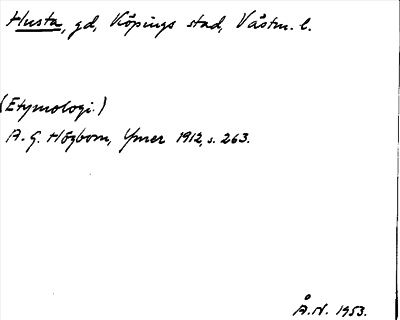 Husta, gd, Köpings stad, Västm. l.
(Etymologi.)
A. G. Högbom, Ymer 1912, s. 263.
Å. N. 1953.